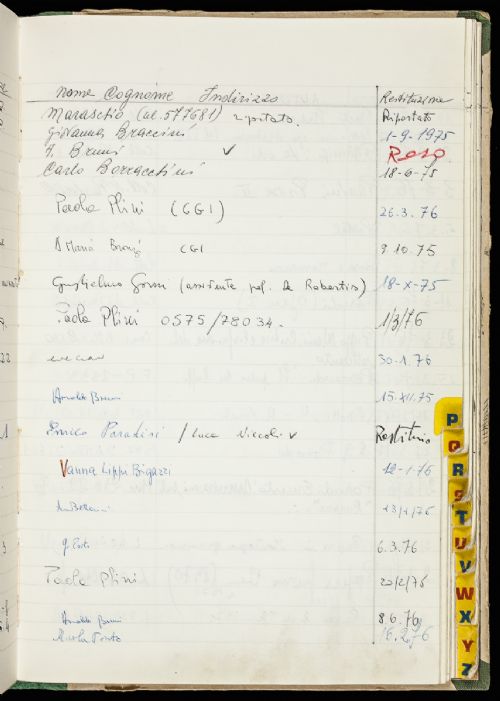 nome Cognome Indirizzo Restituzione
Maraschio (tel. 577681) Riportato
Giovanna Braccini 1-9-1975
A. Bruni ✓ Reso
Carlo 18-6-75
Paola Plini (CGI) 26.3.76
CGI 9.10.75
Guglielmo Gorni (assistente prof. De Robertis) 18-X-75
Paola Plini 0575/78034. 1/3/76
30-1.76
Arnaldo Bruni 15.XII.75
Enrico Paradisi / Luca Niccoli ✓ Restituito
Vanna Lippi Bigazzi 12-1-76
13/1/76
6.3.76
Paola Plini 20/2/76
Arnaldo Bruni 8.6.76
16.2.76
22
1
3
P
Q
R
S
T
U
V
W
X
Y
Z